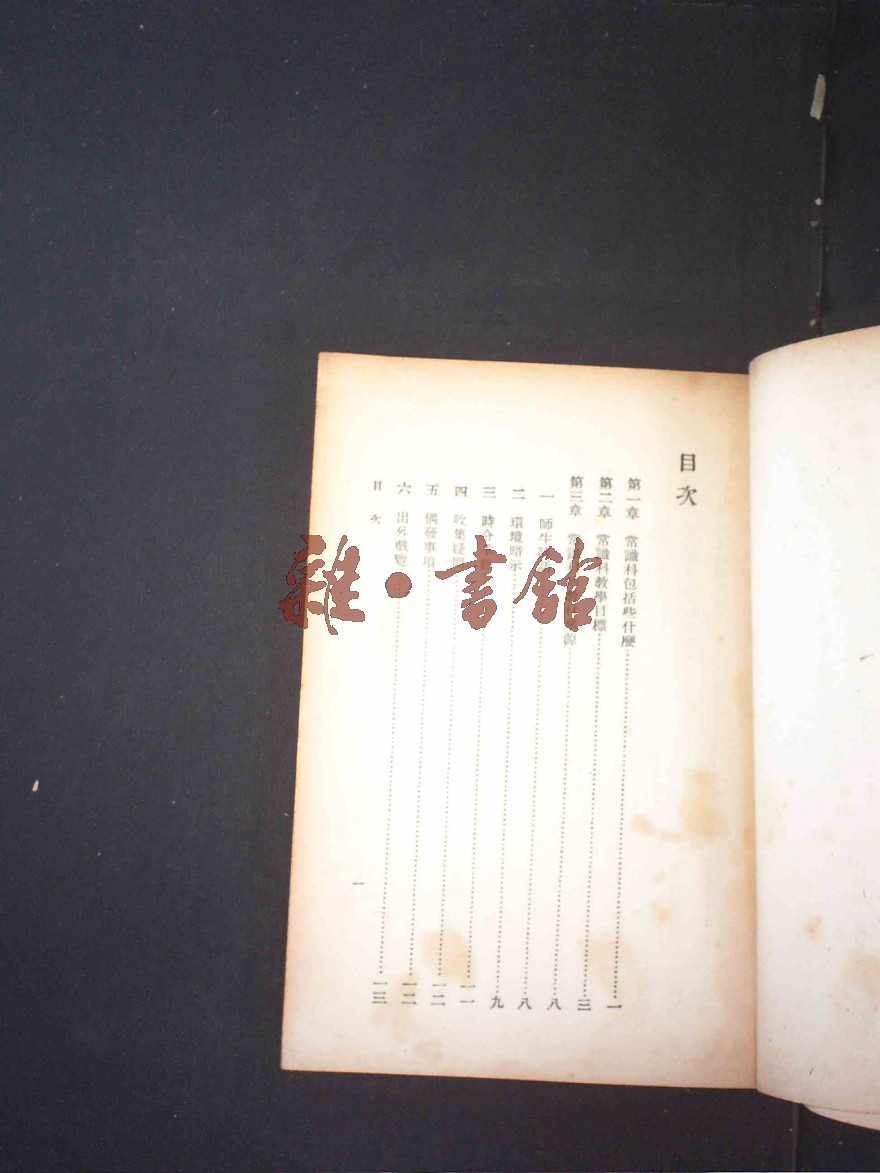 目次
第一章 常識科包括些什麼……一
第二章 常識科教學目標……三
第三章 常識 源……八
一 師生……八
二 環境暗示……九
三 時令……一一
四 收集疑……一二
五 偶發事項……一二
六 出外戲覽……一三
目次
一
雜·書館